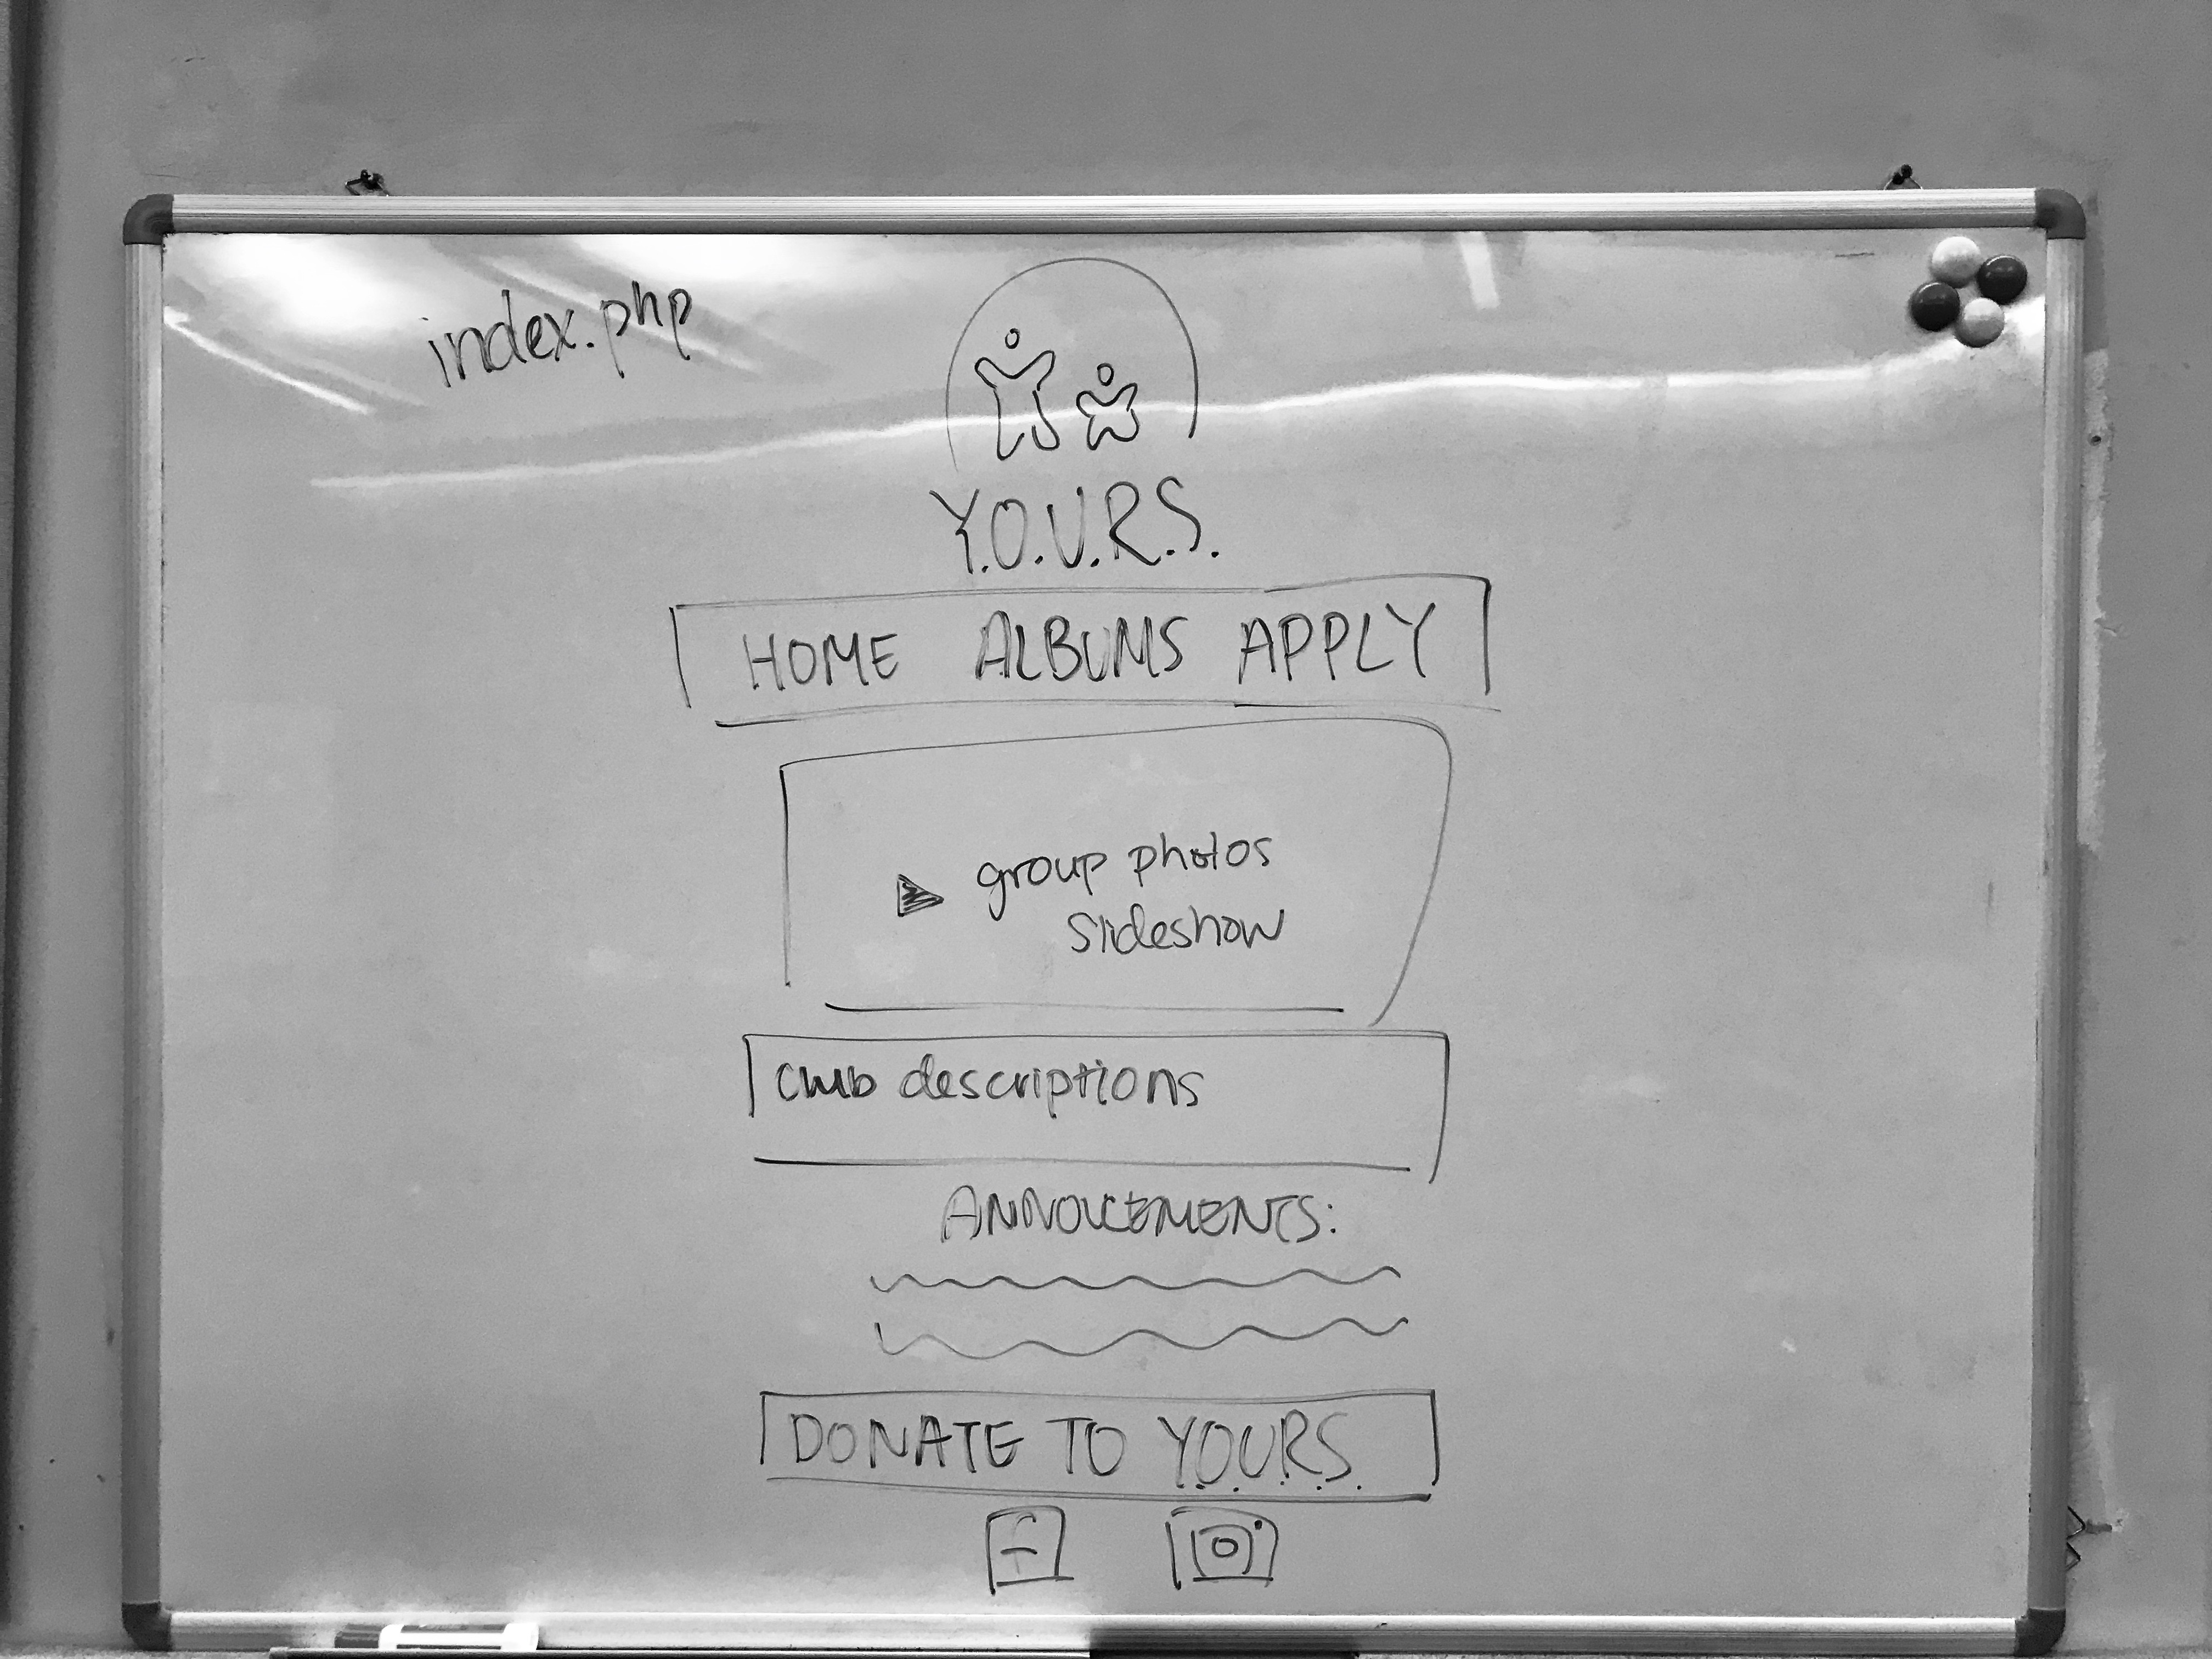 index.php
Y.O.U.R.S.
HOME ALBUMS APPLY
group photos
slideshow
club descriptions
ANNOUCEMENTS:
DONATE TO Y.O.U.R.S.
f